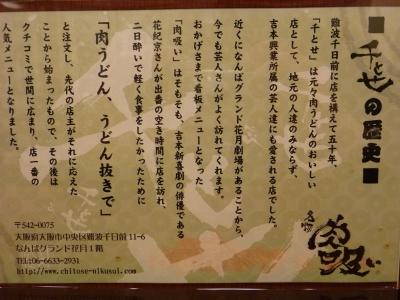 ■千とせの歴史■
難波千日前に店を構えて五十年、
「千とせ」は元々肉うどんのおいしい
店として、地元の人達のみならず、
吉本興業所属の芸人達にも愛される店でした。
近くになんばグランド花月劇場があることから、
今でも芸人さんがよく訪れてくれます。
おかげさまで看板メニューとなった
「肉吸い」はそもそも、吉本新喜劇の俳優である
花紀京さんが出番の空き時間に店を訪れ、
二日酔いで軽く食事をしたかったために
「肉うどん、うどん抜きで」
と注文し、先代の店主がそれに応えた
ことから始まったもので、その後は
クチコミで世間に広まり、店一番の
人気メニューとなりました。
名物
肉吸い
〒542-0075
大阪府大阪市中央区難波千日前11-6
なんばグランド花月1階
TEL:06-6633-2931
http://www.chitose-nikusui.com/